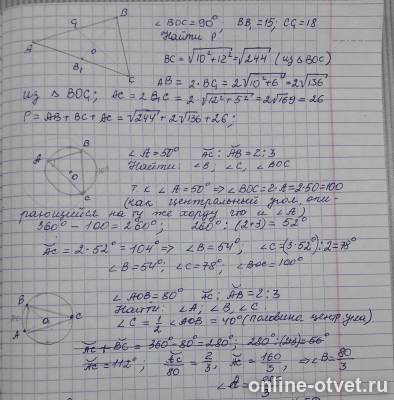 ∠BOC = 90° BB₁ = 15; CC₁ = 18
Найти P
BC = √10² + 12² = √244 (из ΔBOC)
AB = 2·BC₁ = 2√10² + 6² = 2√136
из ΔBOC₁; AC = 2B₁C = 2·√12² + 5² = 2√169 = 26
P = AB + BC + AC = √244 + 2√136 + 26;
∠A = 50° AC : AB = 2 : 3
Найти: ∠B; ∠C, ∠BOC
т.к ∠A = 50° ⇒ ∠BOC = 2·A = 2·50 = 100
(как центральный угол, опи-
рающейся на ту же хорду что и ∠A)
360° - 100 = 260°; 260° : (2+3) = 52°
AC = 2·52° = 104° ⇒ ∠B = 54°, ∠C = (3·52°) : 2 = 78°
∠B = 54°; ∠C = 78°, ∠BOC = 100°
∠AOB = 80° AC : AB = 2 : 3
Найти: ∠A; ∠B, ∠C.
∠C = 1/2 ∠AOB = 40° (половина центр.угла)
AC + BC = 360° - 80° = 280°; 280° : (2+3) = 56°
AC = 112°; AC/80 = 2/3, AC = 160/3, ⇒ ∠B = 80/3
online-otvet.ru